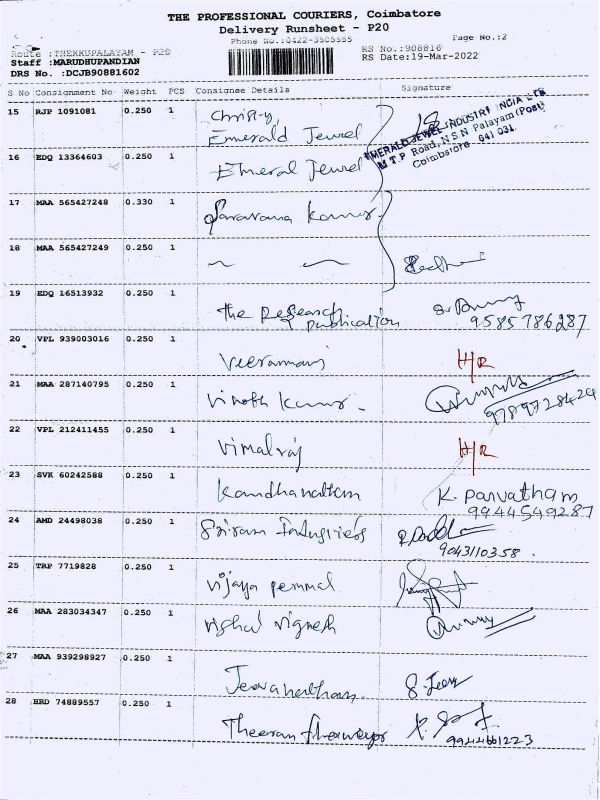 THE PROFESSIONAL COURIERS, Coimbatore
Delivery Runsheet - P20
Phone No.:0422-3505555
Page No.:2
Route :THEKKUPALAYAM - P20
RS No.:908816
Staff :MARUDHUPANDIAN
RS Date:19-Mar-2022
DRS No. :DCJB90881602
S No Consignment No Weight PCS Consignee Details Signature
15 RJP 1091081 0.250 1 Christy,
Emerald Jewel
EMERALD JEWEL INDUSTRY INDIA LTD
M.T.P Road, N.S.N Palayam (Post)
Coimbatore - 641 031.
16 EDQ 13364603 0.250 1 Emeral Jewel
17 MAA 565427248 0.330 1 Saravana Kumar
18 MAA 565427249 0.250 1
19 EDQ 16513932 0.250 1 The Research
Publication 9585786287
20 VPL 939003016 0.250 1 Veeramani H/R
21 MAA 287140795 0.250 1 Vinoth Kumar - 9789728424
22 VPL 212411455 0.250 1 Vimalraj H/R
23 SVK 60242588 0.250 1 K. Parvatham
9944549287
24 AMD 24498038 0.250 1 Sriram Industries
9043110358.
25 TRP 7719828 0.250 1 Vijaya perumal
26 MAA 283034347 0.250 1 Vishal Vignesh
27 MAA 939298927 0.250 1
28 HRD 74889557 0.250 1 Theeran
9944661223